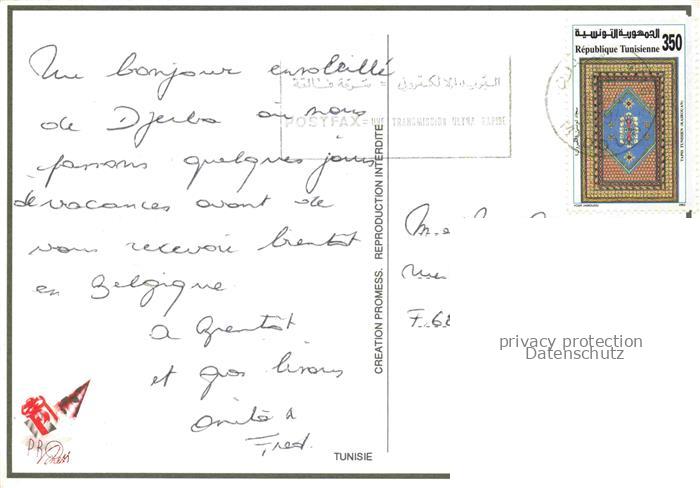 Un bonjour ensoleillé
de Djerba où nous
passons quelques jours
de vacances avant de
vous recevoir bientôt
en Belgique
a Bientôt
et gros bisous
Fred.
TUNISIE
CREATION PROMESS. REPRODUCTION INTERDITE
البريد الالكتروني = سرعة فائقة
POSTFAX = UNE TRANSMISSION ULTRA RAPIDE
الجمهورية التونسية
350
République Tunisienne
TAPIS TUNISIEN (KAIROUAN)
F.68
privacy protection
Datenschutz